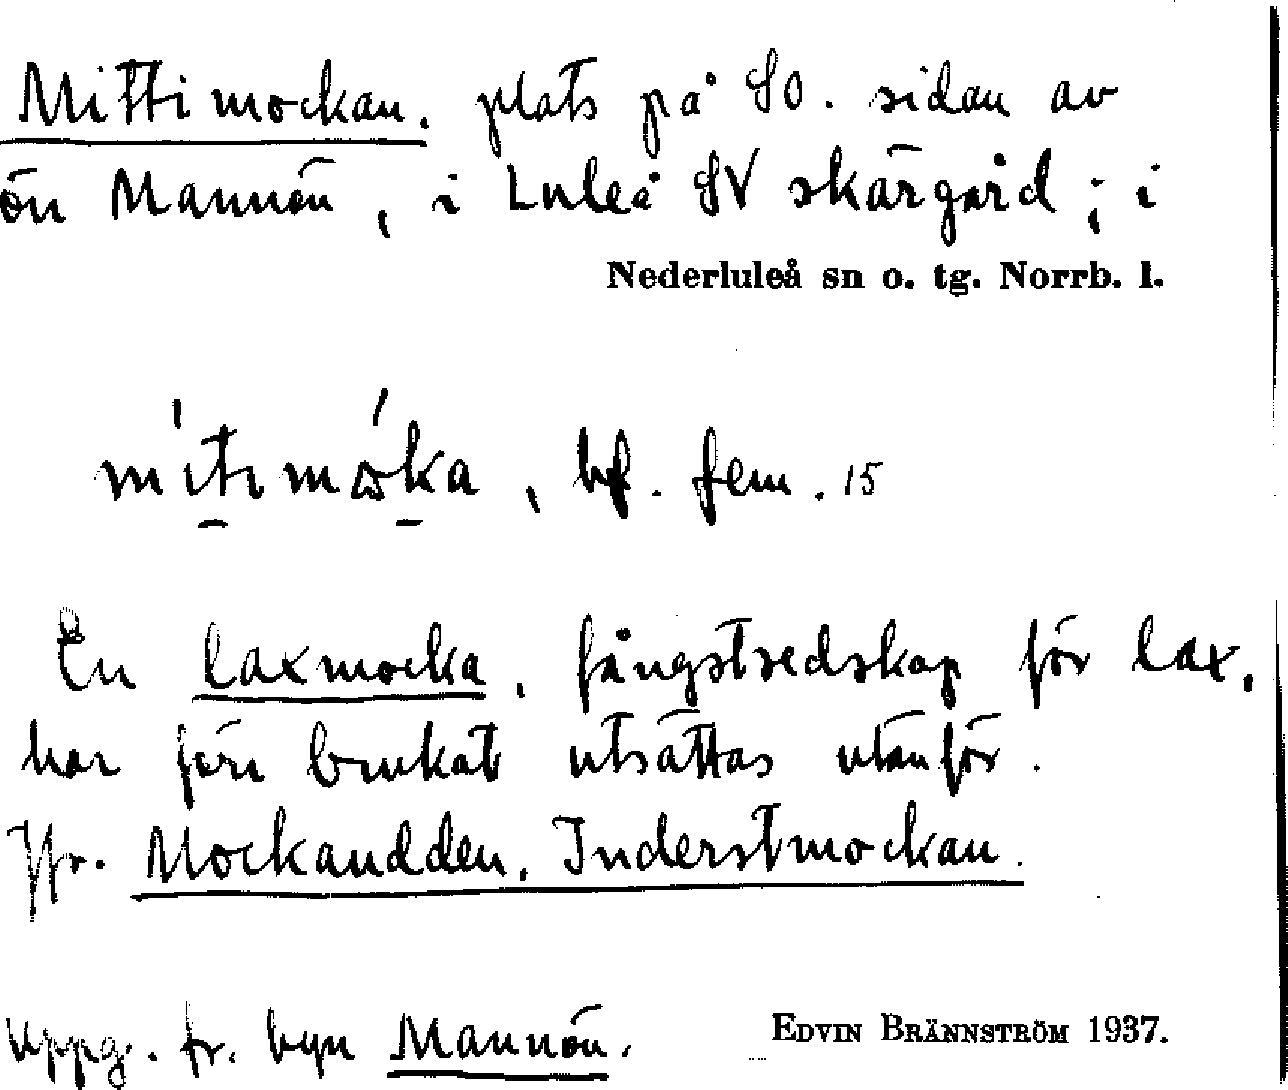 Mittimockan. plats på SO. sidan av
ön Mannön, i Luleå SV skärgård; i
Nederluleå sn o. tg. Norrb. l.
bf. fem. 15
En laxmocka, fångstredskap för lax,
har förr brukat utsättas utanför.
Jfr. Mockaudden, Inderstmockan.
Uppg. fr. byn Mannön.
EDVIN BRÄNNSTRÖM 1937.